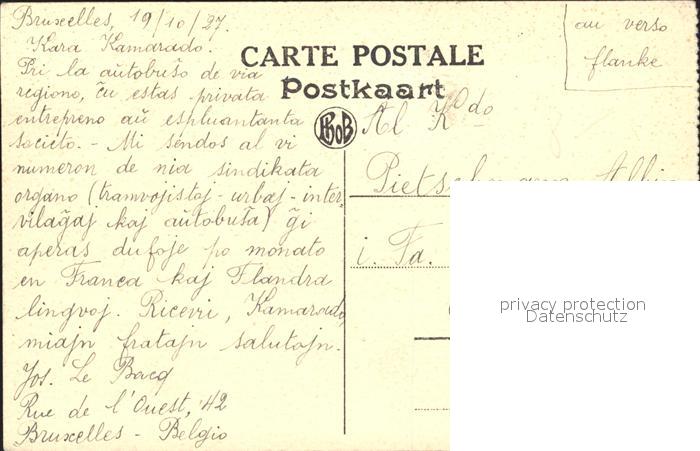 Bruxelles, 19/10/27.
Kara Kamarado.
Pri la aŭtobuŝo de via
regiono, ĉu estas privata
entrepreno aŭ espluantanta
societo. - Mi sendos al vi
numeron de nia sindikata
organo (tramvojistoj - urbaj - inter,
vilaĝaj kaj aŭtobuŝa) ĝi
aperas dufoje po monato
en Franca kaj Flandra
lingvoj. Ricevi, Kamarado,
miajn fratajn salutojn.
Jos. Le Bacq
Rue de l'Ouest, 42
Bruxelles - Belgio
CARTE POSTALE
Postkaart
au verso
flanke
Al Kdo
i. Fa.
privacy protection
Datenschutz